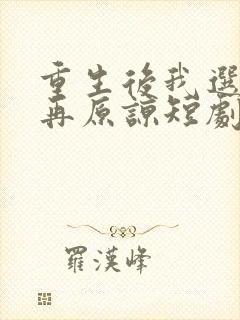 重生後我選
再原諒短劇
羅漢峰